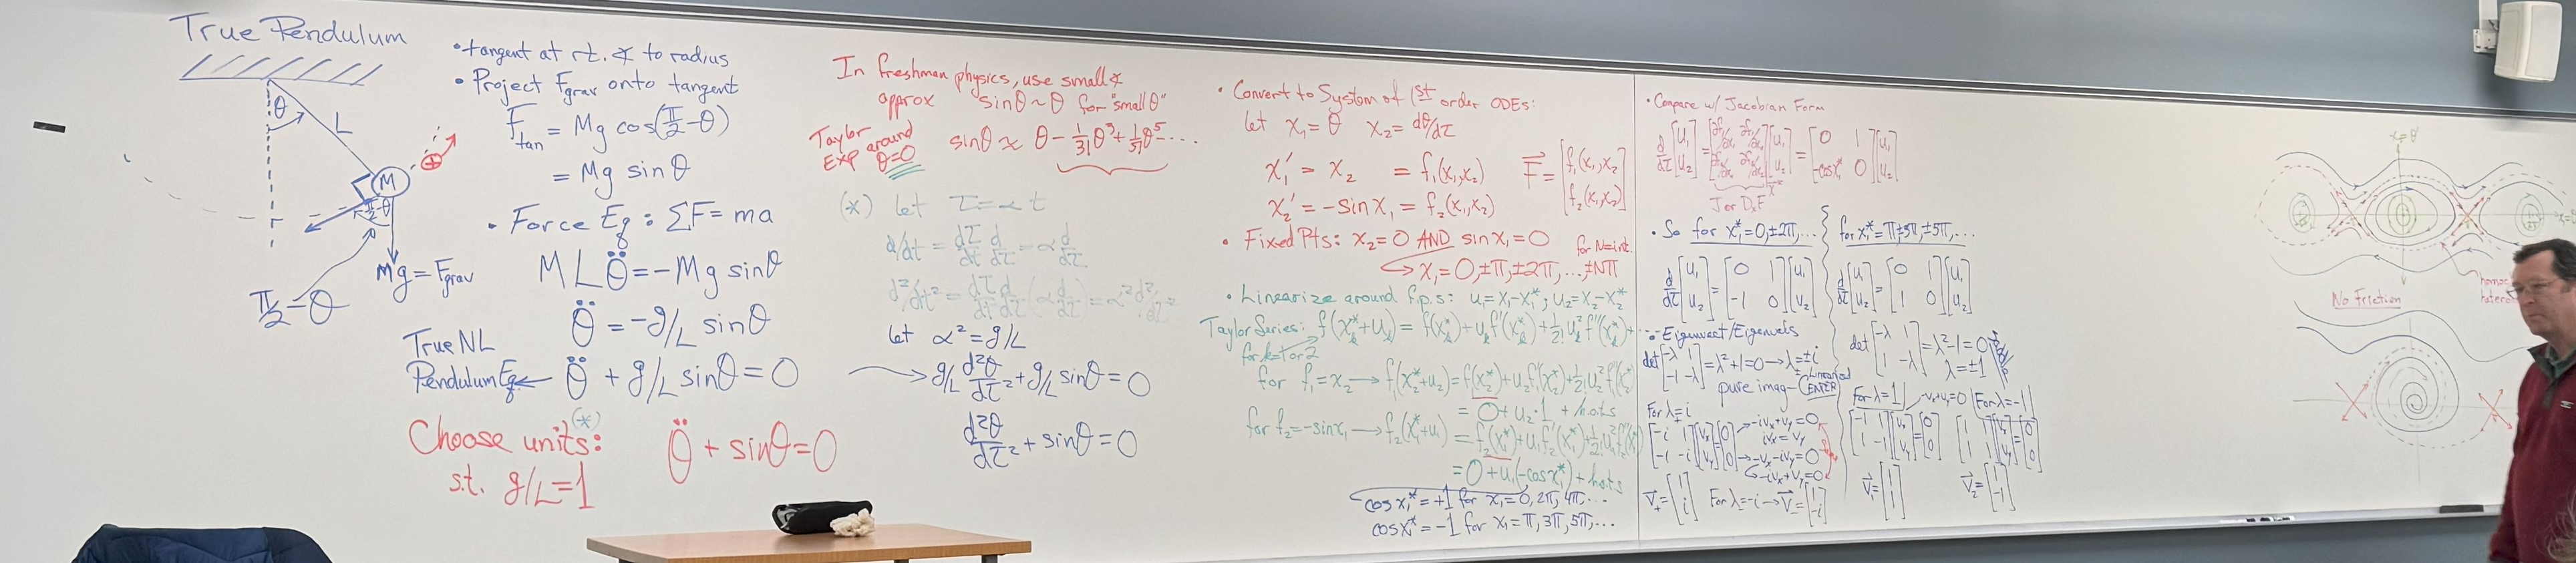 True Pendulum
θ
L
M
π/2-θ
Mg = Fgrav
π/2 - θ
• tangent at rt. ∡ to radius
• Project Fgrav onto tangent
Ftan = Mg cos(π/2 - θ)
= Mg sinθ
• Force Eq: ΣF = ma
MLθ̈ = -Mg sinθ
θ̈ = -g/L sinθ
True NL
Pendulum Eq ← θ̈ + g/L sinθ = 0
Choose units: (*)
s.t. g/L = 1
θ̈ + sinθ = 0
In freshman physics, use small ∡
approx sinθ ~ θ for "small θ"
Taylor Exp around θ=0
sinθ ≈ θ - 1/3! θ³ + 1/5! θ⁵ ...
(*) let τ = αt
d/dt = dτ/dt d/dτ = α d/dτ
d²/dt² = dτ/dt d/dτ (α d/dτ) = α² d²/dτ²
let α² = g/L
→ g/L d²θ/dτ² + g/L sinθ = 0
d²θ/dτ² + sinθ = 0
• Convert to System of 1st order ODEs:
let x₁ = θ x₂ = dθ/dτ
x₁' = x₂ = f₁(x₁,x₂)
x₂' = -sin x₁ = f₂(x₁,x₂)
F⃗ = [f₁(x₁,x₂) f₂(x₁,x₂)]
• Fixed Pts: x₂ = 0 AND sin x₁ = 0
for N=int.
→ x₁ = 0, ±π, ±2π, ..., ±Nπ
• Linearize around f.p.s: u₁ = x₁ - x₁*; u₂ = x₂ - x₂*
Taylor Series: f(x*ₖ + uₖ) = f(x*ₖ) + uₖ f'(x*ₖ) + 1/2! uₖ² f''(x*ₖ) + ...
for k=1 or 2
for f₁ = x₂ → f₁(x₂* + u₂) = f₁(x₂*) + u₂ f₁'(x₂*) + 1/2! u₂² f₁''(x₂*)
= 0 + u₂·1 + h.o.ts
for f₂ = -sin x₁ → f₂(x₁* + u₁) = f₂(x₁*) + u₁ f₂'(x₁*) + 1/2! u₁² f₂''(x₁*)
= 0 + u₁(-cos x₁*) + h.o.ts
cos x₁* = +1 for x₁ = 0, 2π, 4π, ...
cos x₁* = -1 for x₁ = π, 3π, 5π, ...
• Compare w/ Jacobian Form
d/dτ [u₁ u₂] = [∂f₁/∂x₁ ∂f₁/∂x₂ ∂f₂/∂x₁ ∂f₂/∂x₂] [u₁ u₂] = [0 1 -cos x₁* 0] [u₁ u₂]
J or DₓF
• So for x₁* = 0, ±2π, ...
d/dτ [u₁ u₂] = [0 1 -1 0] [u₁ u₂]
for x₁* = π, ±3π, ±5π, ...
d/dτ [u₁ u₂] = [0 1 1 0] [u₁ u₂]
• Eigenvect/Eigenvals
det [-λ 1 -1 -λ] = λ² + 1 = 0 → λ = ±i
pure imag - Linearized CENTER
For λ = i
[-i 1 -1 -i] [vₓ vᵧ] = [0 0]
→ -ivₓ + vᵧ = 0
ivₓ = vᵧ
→ -vₓ - ivᵧ = 0
→ -ivₓ + vᵧ = 0
v⃗₊ = [1 i] For λ = -i → v⃗₋ = [1 -i]
det [-λ 1 1 -λ] = λ² - 1 = 0
λ = ±1
For λ = 1
-vₓ + vᵧ = 0
[-1 1 1 -1] [vₓ vᵧ] = [0 0]
v⃗₁ = [1 1]
For λ = -1
[1 1 1 1] [vₓ vᵧ] = [0 0]
v⃗₂ = [1 -1]
No Friction